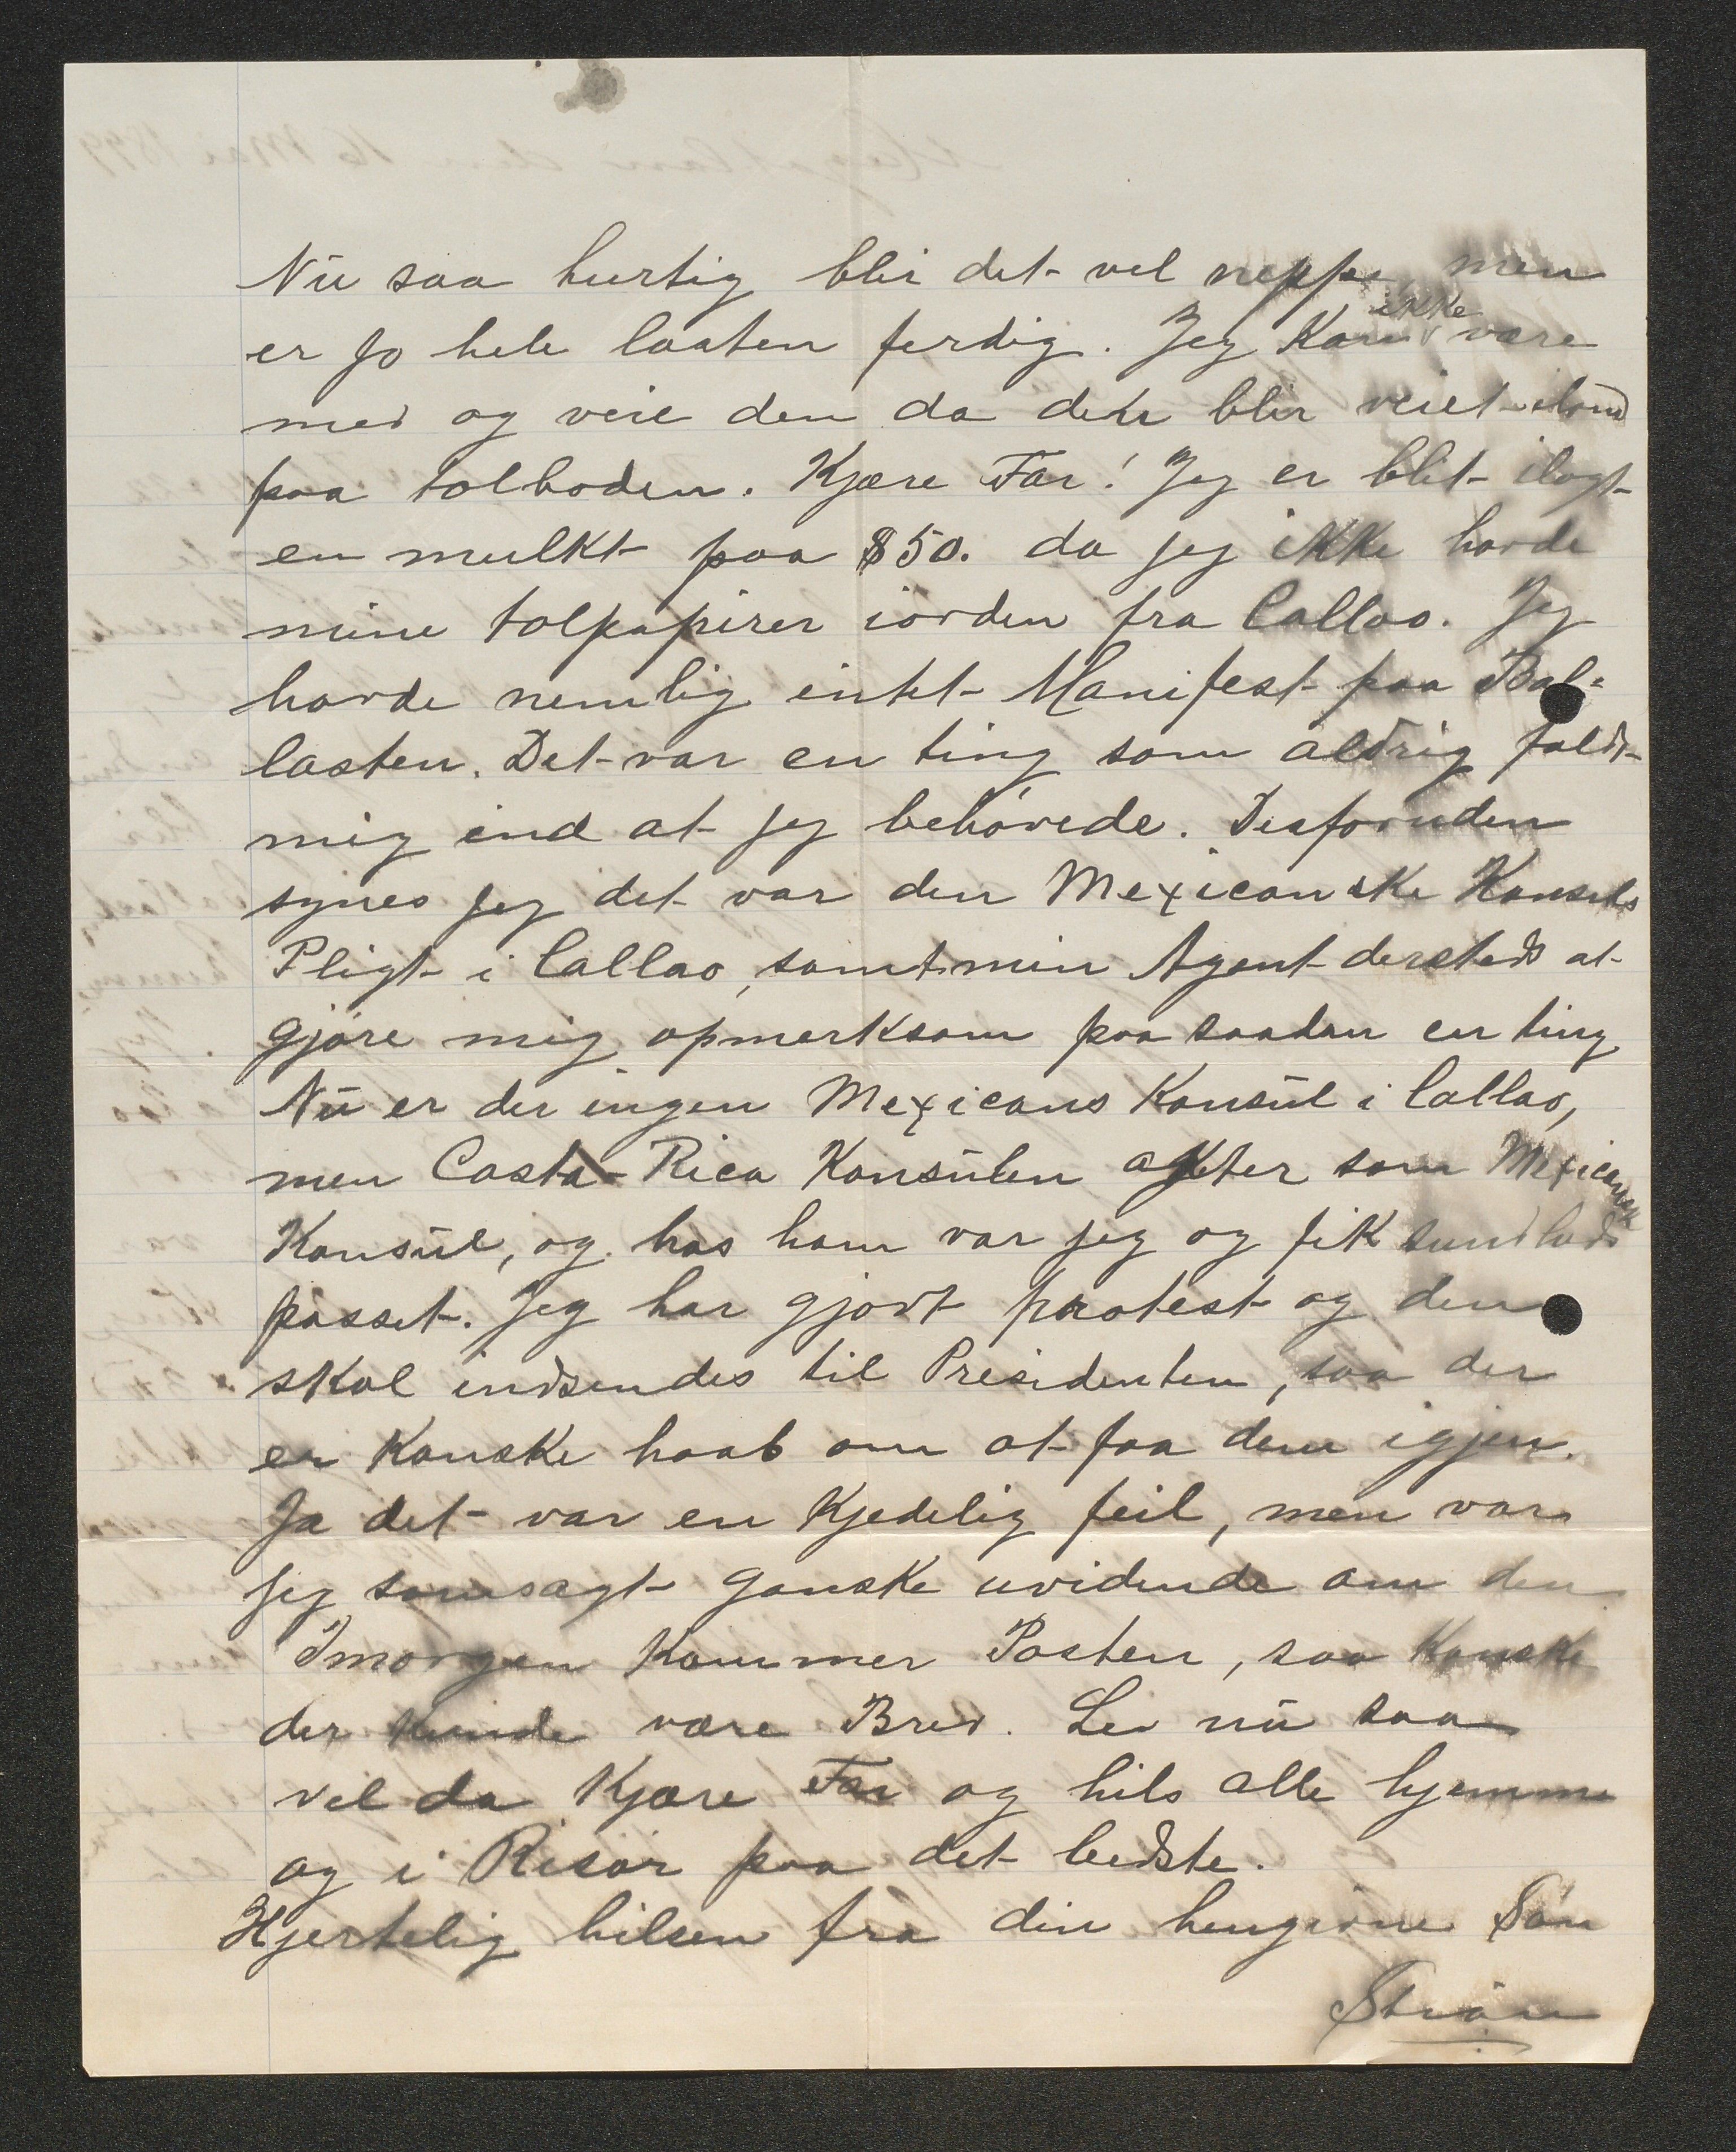 Nu saa hurtig blir det vel neppe, men
er jo hele lasten ferdig. Jeg kan ikke være
med og veie den da den blir veiet
paa tolboden. Kjære Far! Jeg er blit ilagt
en mulkt paa $50. da jeg ikke havde
mine tolpapirer iorden fra Callao. Jeg
havde nemlig intet Manifest paa Bal=
lasten. Det var en ting som aldrig faldt
mig ind at jeg behövede. Desforuden
synes jeg det var den Mexicanske Konsuls
Pligt i Callao, samt min Agent dersteds at
gjöre mig opmerksom paa saadan en ting
Nu er der ingen Mexicans Konsul i Callao,
men Costa-Rica Konsulen akter som Mexicansk
Konsul, og hos ham var jeg og fik sundheds
passet. Jeg har gjort protest og den
skal indsendes til Presidenten, saa der
er kanske haab om at faa dem igjen.
Ja det var en kjedelig feil, men var
jeg somsagt ganske uvidende om den
Imorgen kommer Posten, saa kanske
der kunde være Brev. Lev nu saa
vel da Kjære Far og hils alle hjemme
og i Risör paa det bedste.
Hjertelig hilsen fra din hengivne Sön